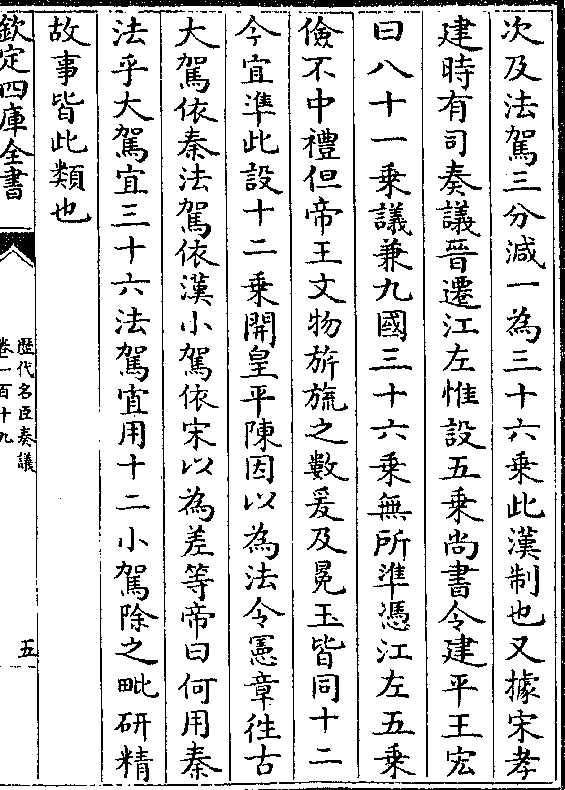 次及法駕三分減一為三十六乗此漢制也又據宋孝
建時有司奏議晉遷江左惟設五乗尚書令建平王宏
曰八十一乗議兼九國三十六乗無所準憑江左五乗
儉不中禮但帝王文物旂旒之數爰及冕玉皆同十二
今宜準此設十二乗開皇平陳因以為法令憲章徃古
大駕依秦法駕依漢小駕依宋以為差等帝曰何用秦
法乎大駕宜三十六法駕宜用十二小駕除之毗研精
故事皆此類也
欽定四庫全書
歴代名臣奏議
卷一百十九
五